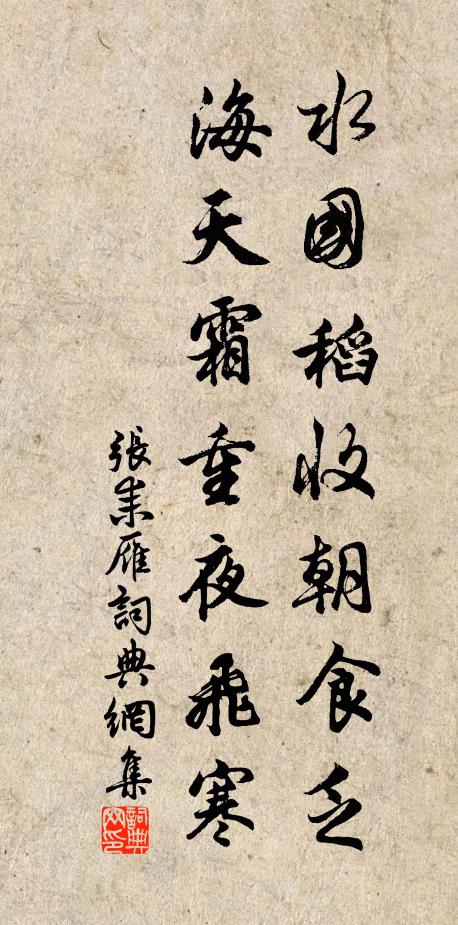 水國稻收朝食乏
海天霜重夜飛寒
張耒雁詞典網集
詞典網印